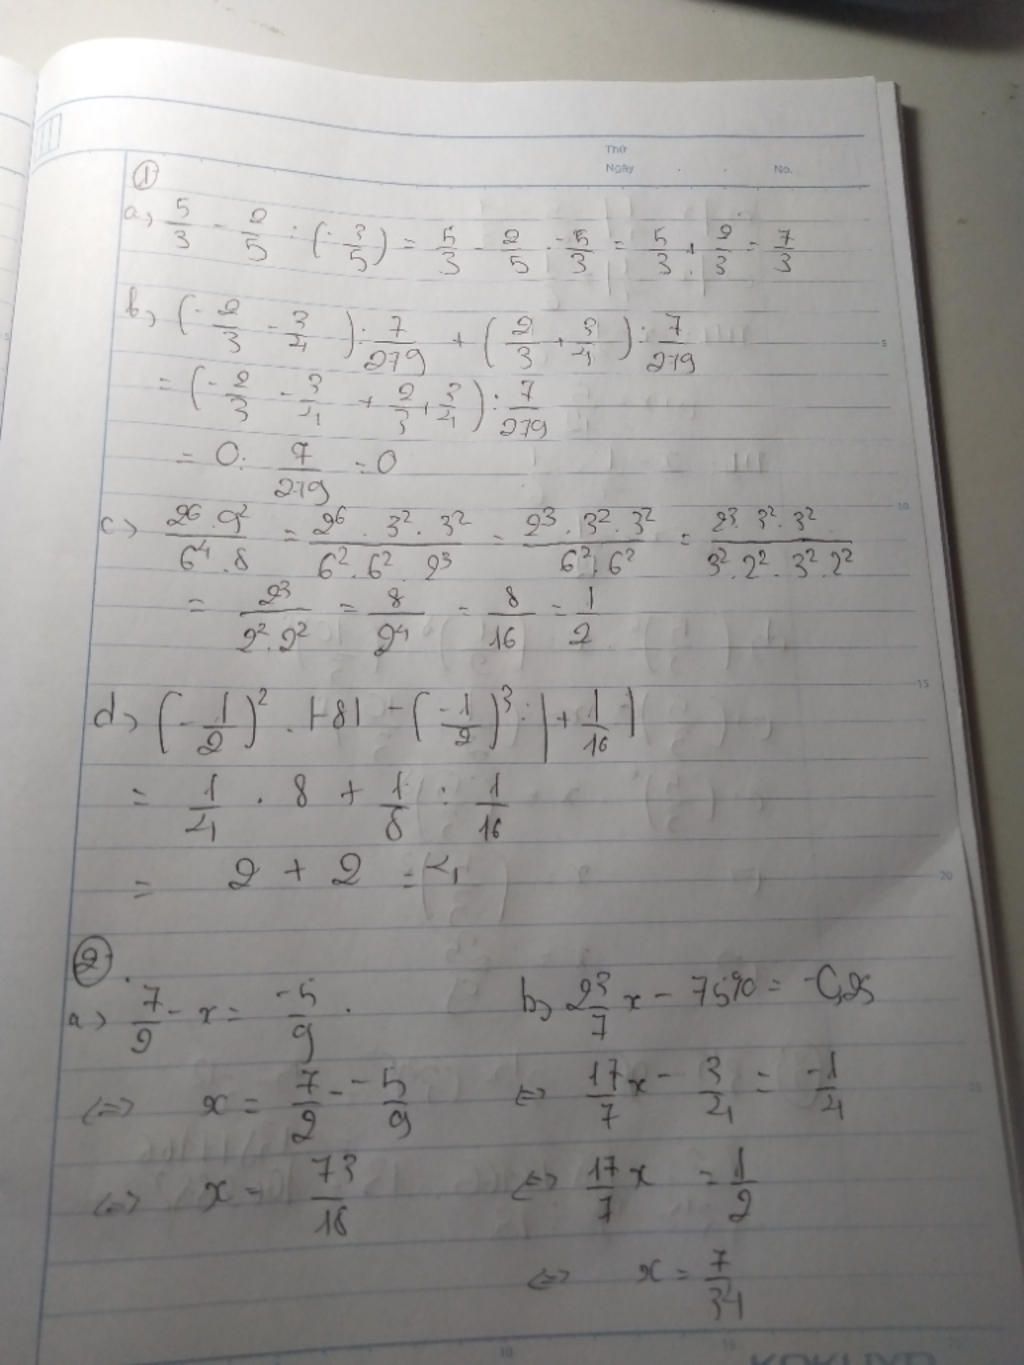 Thứ
Ngày . . No.
①
a) 5/3 - 2/5 : (-3/5) = 5/3 - 2/5 . -5/3 = 5/3 + 2/3 = 7/3
b) (-2/3 - 3/4) : 7/279 + (2/3 + 3/4) : 7/279
5
= (-2/3 - 3/4 + 2/3 + 3/4) : 7/279
= 0 : 7/279 = 0
10
c) (2^6 . 9^2)/(6^4 . 8) = (2^6 . 3^2 . 3^2)/(6^2 . 6^2 . 2^3) = (2^3 . 3^2 . 3^2)/(6^2 . 6^2) = (2^3 . 3^2 . 3^2)/(3^2 . 2^2 . 3^2 . 2^2)
= 2^3/(2^2 . 2^2) = 8/2^4 = 8/16 = 1/2
15
d) (-1/2)^2 . |-8| - (-1/2)^3 : |+1/16|
= 1/4 . 8 + 1/8 : 1/16
= 2 + 2 = 4
20
②.
a) 7/2 - x = -5/9 .
b) 2 3/7 x - 75% = -0,25
<=> x = 7/2 - -5/9
<=> 17/7 x - 3/4 = -1/4
<=> x = 73/18
<=> 17/7 x = 1/2
<=> x = 7/34
10 15